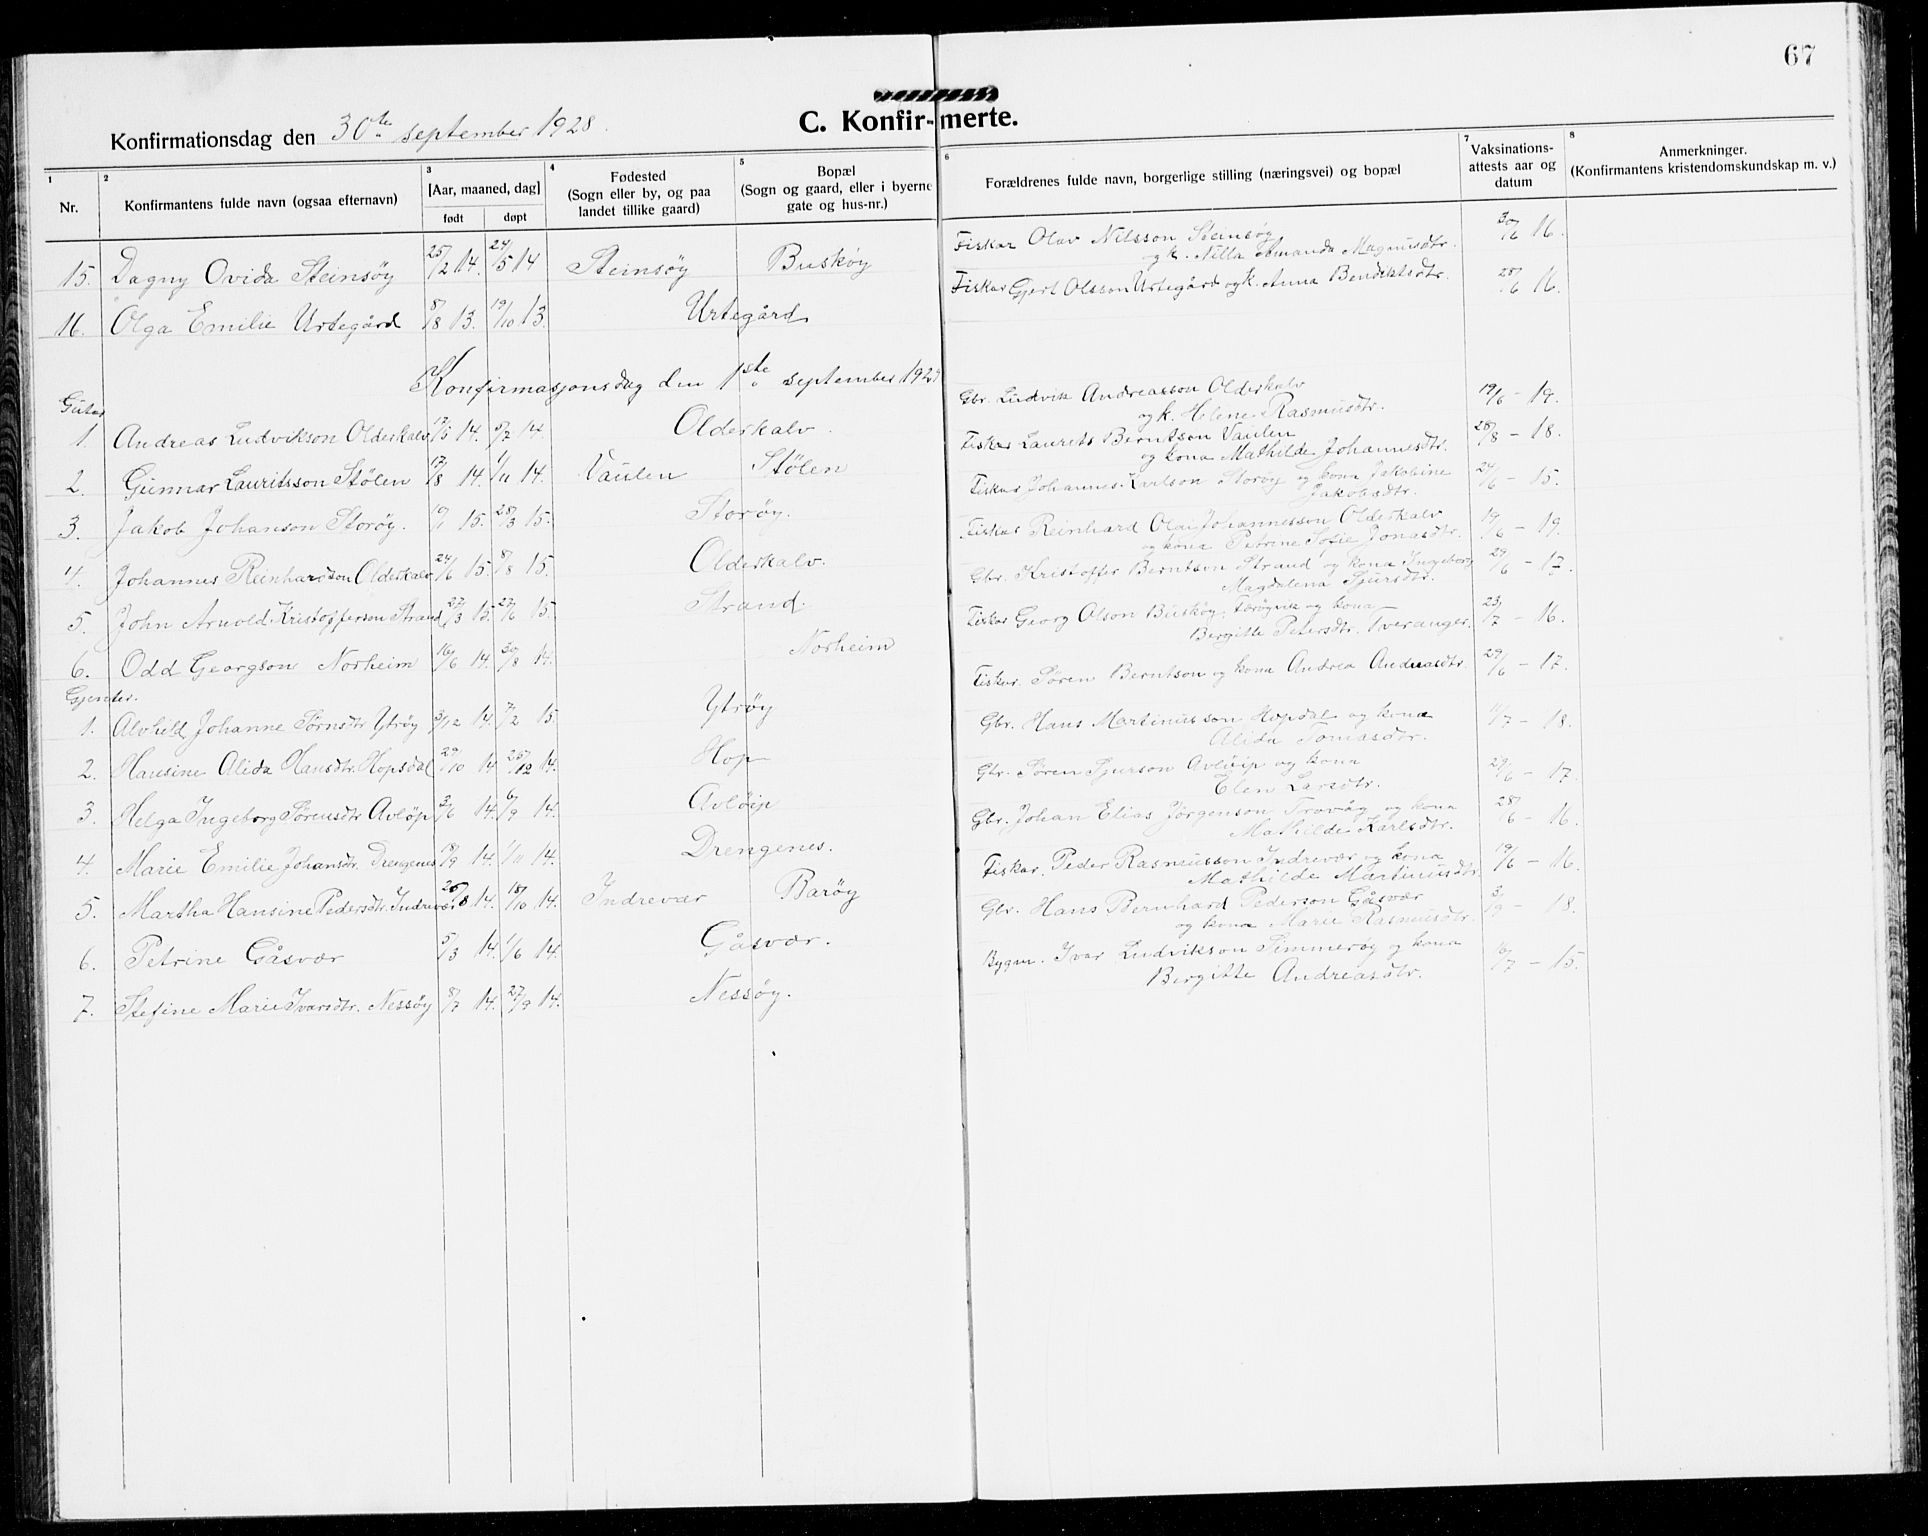 67
C. Konfir-merte.
Konfirmationsdag den 30te september 1928.
1 2 3 4 5 6 7 8
Nr.
Konfirmantens fulde navn (ogsaa efternavn)
[Aar, maaned, dag]
født døpt
Fødested
(Sogn eller by, og paa
landet tillike gaard)
Bopæl
(Sogn og gaard, eller i byerne
gate og hus-nr.)
Forældrenes fulde navn, borgerlige stilling (næringsvei) og bopæl
Vaksinations-
attests aar og
datum
Anmerkninger.
(Konfirmantens kristendomskundskap m. v.)
15. Dagny Ovida Steinsøy 25/2 14. 24/5 14 Steinsøy Buskøy Fiskar Olav Nilsson Steinsøy 30/6 16.
og k. Nilla Amanda Magnusdtr.
16. Olga Emilie Urtegård 8/8 13. 19/10 13. Urtegård Fiskar Gjert Olsson Urtegård og k. Anna Bendiktsdtr. 28/6 16.
Konfirmasjonsdag den 1ste september 192
Gutar
1. Andreas Ludvikson Olderkalv 17/5 14. 5/7 14. Olderkalv. Gbr. Ludvik Andreasson Olderkalv 19/6 - 19.
og k. Helene Rasmusdtr.
2. Gunnar Lauritsson Stølen 17/8 14. 1/11 14. Vaulen Stølen Fiskar Laurits Berntson Vaulen 28/8 - 18.
og kona Mathilde Johannesdtr.
3. Jakob Johanson Storøy. 15. 28/3 15. Storøy. Fiskar Johannes Karlson Storøy og kona Jakobine 24/6 - 15.
Jakobsdtr.
4. Johannes Reinhardson Olderkalv 24/6 15. 8/8 15. Olderkalv. Fiskar Reinhard Olai Johannesson Olderkalv 19/6 - 19.
og kona Petrine Sofie Jonasdtr.
5. John Arnold Kristofferson Strand 27/3 15. 27/6 15. Strand. Gbr. Kristoffer Berntson Strand og kona Ingeborg 29/6 - 17.
Magdalena Sjursdtr.
6. Odd Georgson Norheim 16/6 14. 30/8 14. Norheim Fiskar Georg Olson Buskøy, og kona 23/7 - 16.
Bergitte Petersdtr.
Gjenter.
1. Alvhild Johanne Sørnsdtr Ytrøy 3/12 14. 7/2 15. Ytrøy Fiskar. Søren Berntson og kona Andrea Andreasdtr. 29/6 - 17.
2. Hansine Alida Hansdtr. Hopsdal 29/10 14 26/12 14. Hop Gbr. Hans Martinusson Hopdal og kona 11/7 - 18.
Alida Tomasdtr.
3. Helga Ingeborg Sørensdtr Avløp 3/6 14. 6/9 14. Avløip Gbr. Søren Sjurson Avløip og kona 29/6 - 17.
Elen Larsdtr.
4. Marie Emilie Johansdtr. Drengenes 14. 1/11 14. Drengenes. Gbr. Johan Elias Jørgenson Trovåg og kona 28/6 - 16.
Mathilde Karlsdtr.
5. Martha Hansine Pedersdtr. Indrevær 14. 18/10 14. Indrevær Barøy Fiskar. Peder Rasmusson Indrevær og kona 19/6 - 16.
Mathilde Martinusdtr
6. Petrine Gåsvær 5/3 14. 1/6 14. Gåsvær. Gbr. Hans Bernhard Pederson Gåsvær 3/9 - 18.
og kona Marie Rasmusdtr.
7. Stefine Marie Ivarsdtr. Nessøy 8/7 14. 27/9 14. Nessøy. Bygm. Ivar Ludvikson Simmerøy og kona 16/7 - 15.
Bergitte Andreasdtr.